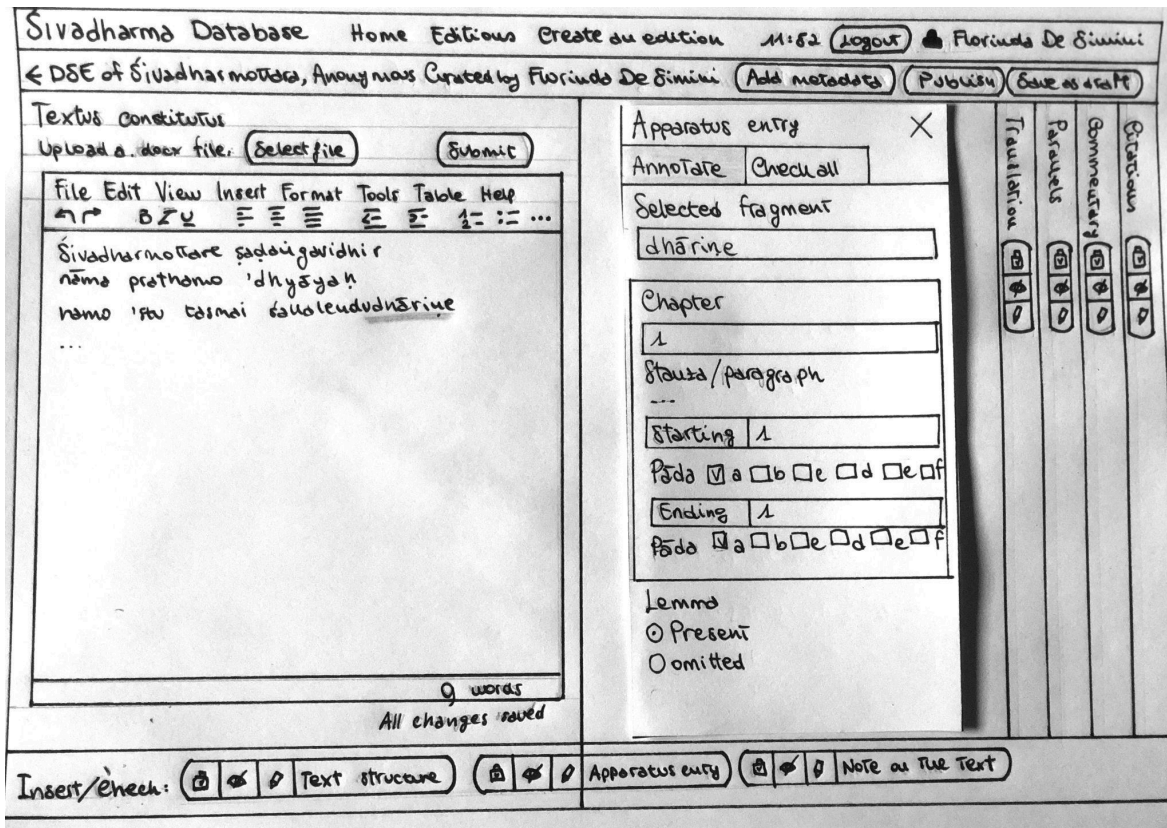 Śivadharma Database Home Editions Create an edition 11:52 Logout Florinda De Simini
← DSE of Śivadharmottara, Anonymous Curated by Florinda De Simini Add metadata Publish Save as draft
Textus constitutus
Upload a .docx file: Select file Submit
File Edit View Insert Format Tools Table Help
B I U ...
Śivadharmottare ṣaḍaṅgavidhir
nāma prathamo 'dhyāyaḥ
namo 'stu tasmai sakalendudhāriṇe
...
9 words
All changes saved
Apparatus entry X
Annotate Check all
Selected fragment
dhāriṇe
Chapter
1
Stanza/paragraph
---
Starting 1
Pāda a b c d e f
Ending 1
Pāda a b c d e f
Lemma
Present
omitted
Translation
Parallels
Commentary
Citations
Insert/Check: Text structure Apparatus entry Note on the Text